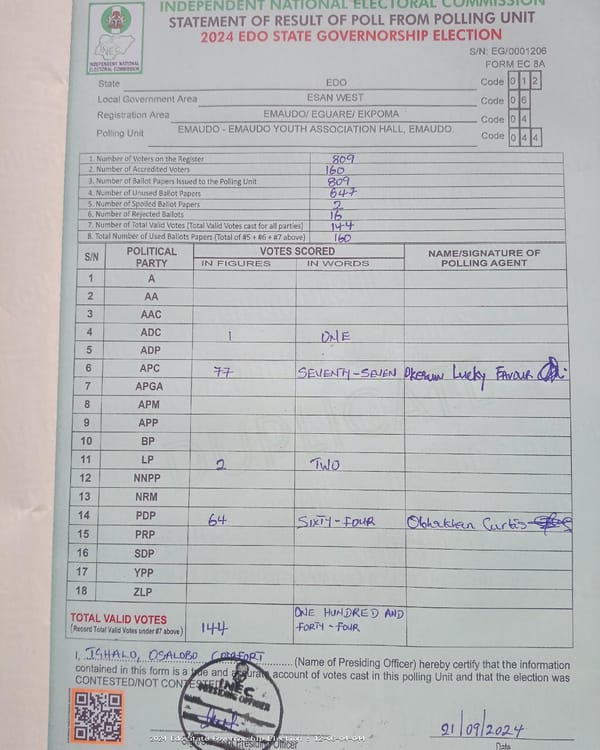 INDEPENDENT NATIONAL ELECTORAL COMMISSION
STATEMENT OF RESULT OF POLL FROM POLLING UNIT
2024 EDO STATE GOVERNORSHIP ELECTION
INEC
INDEPENDENT NATIONAL
ELECTORAL COMMISSION
S/N: EG/0001206
FORM EC 8A
State EDO Code 0 1 2
Local Government Area ESAN WEST Code 0 6
Registration Area EMAUDO/ EGUARE/ EKPOMA Code 0 4
Polling Unit EMAUDO - EMAUDO YOUTH ASSOCIATION HALL, EMAUDO. Code 0 4 4
1. Number of Voters on the Register 809
2. Number of Accredited Voters 160
3. Number of Ballot Papers Issued to the Polling Unit 809
4. Number of Unused Ballot Papers 647
5. Number of Spoiled Ballot Papers 2
6. Number of Rejected Ballots 16
7. Number of Total Valid Votes (Total Valid Votes cast for all parties) 144
8. Total Number of Used Ballots Papers (Total of #5 + #6 + #7 above) 160
S/N POLITICAL PARTY VOTES SCORED NAME/SIGNATURE OF POLLING AGENT
IN FIGURES IN WORDS
1 A
2 AA
3 AAC
4 ADC 1 ONE
5 ADP
6 APC 77 SEVENTY-SEVEN Lucky Favour
7 APGA
8 APM
9 APP
10 BP
11 LP 2 TWO
12 NNPP
13 NRM
14 PDP 64 SIXTY-FOUR Curtis
15 PRP
16 SDP
17 YPP
18 ZLP
TOTAL VALID VOTES 144 ONE HUNDRED AND
(Record Total Valid Votes under #7 above) FORTY-FOUR
I, ISHALO, OSALOBO COMFORT (Name of Presiding Officer) hereby certify that the information
contained in this form is a true and accurate account of votes cast in this polling Unit and that the election was
CONTESTED/NOT CONTESTED
INEC
PRESIDING OFFICER
21/09/2024
2024 Edo State Governorship Election - 12-06-04-044
Presiding Officer
Date